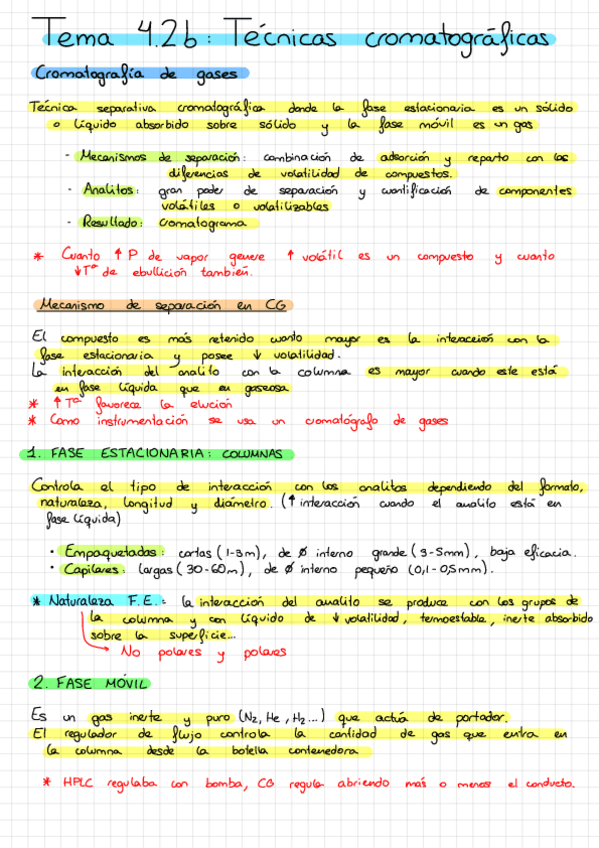 Tema 4.2b: Técnicas cromatográficas
Cromatografía de gases
Técnica separativa cromatográfica donde la fase estacionaria es un sólido
o líquido absorbido sobre sólido y la fase móvil es un gas
- Mecanismos de separación: combinación de adsorción y reparto con las
diferencias de volatilidad de compuestos.
- Analitos: gran poder de separación y cuantificación de componentes
volátiles o volatilizables
- Resultado: cromatograma
* Cuanto ↑ P de vapor genere ↑ volátil es un compuesto y cuanto
↓Tª de ebullición también.
Mecanismo de separación en CG
El compuesto es más retenido cuanto mayor es la interacción con la
fase estacionaria y posee ↓ volatilidad.
La interacción del analito con la columna es mayor cuando este está
en fase líquida que en gaseosa
* ↑ Tª favorece la elución
* Como instrumentación se usa un cromatógrafo de gases
1. FASE ESTACIONARIA: COLUMNAS
Controla el tipo de interacción con los analitos dependiendo del formato,
naturaleza, longitud y diámetro. (↑ interacción cuando el analito está en
fase líquida)
· Empaquetadas: cortas (1-3m), de Ø interno grande (3-5mm), baja eficacia.
· Capilares: largas (30-60m), de Ø interno pequeño (0,1-0,5mm).
* Naturaleza F.E.: la interacción del analito se produce con los grupos de
la columna y con líquido de ↓ volatilidad, termoestable, inerte absorbido
sobre la superficie...
→ No polares y polares
2. FASE MÓVIL
Es un gas inerte y puro (N2, He, H2...) que actúa de portador.
El regulador de flujo controla la cantidad de gas que entra en
la columna desde la botella contenedora
* HPLC regulaba con bomba, CG regula abriendo más o menos el conducto.